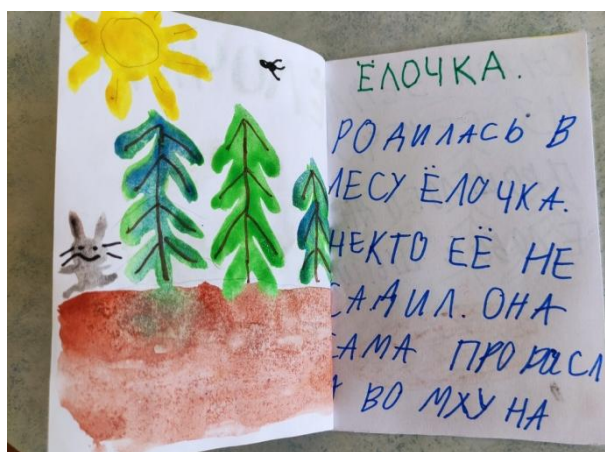 ЁЛОЧКА.
РОДИЛАСЬ В
ЛЕСУ ЁЛОЧКА.
НЕКТО ЕЁ НЕ
САДИЛ. ОНА
САМА ПРОРАСЛ
А ВО МХУ НА